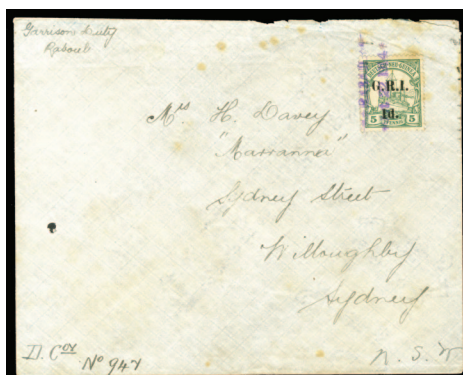 Garrison Duty
Rabaul
G.R.I.
1d.
5 5
Mrs H. Davey
"Marranna"
Sydney Street
Willoughby
Sydney
N. S. W
D. Coy
No 947